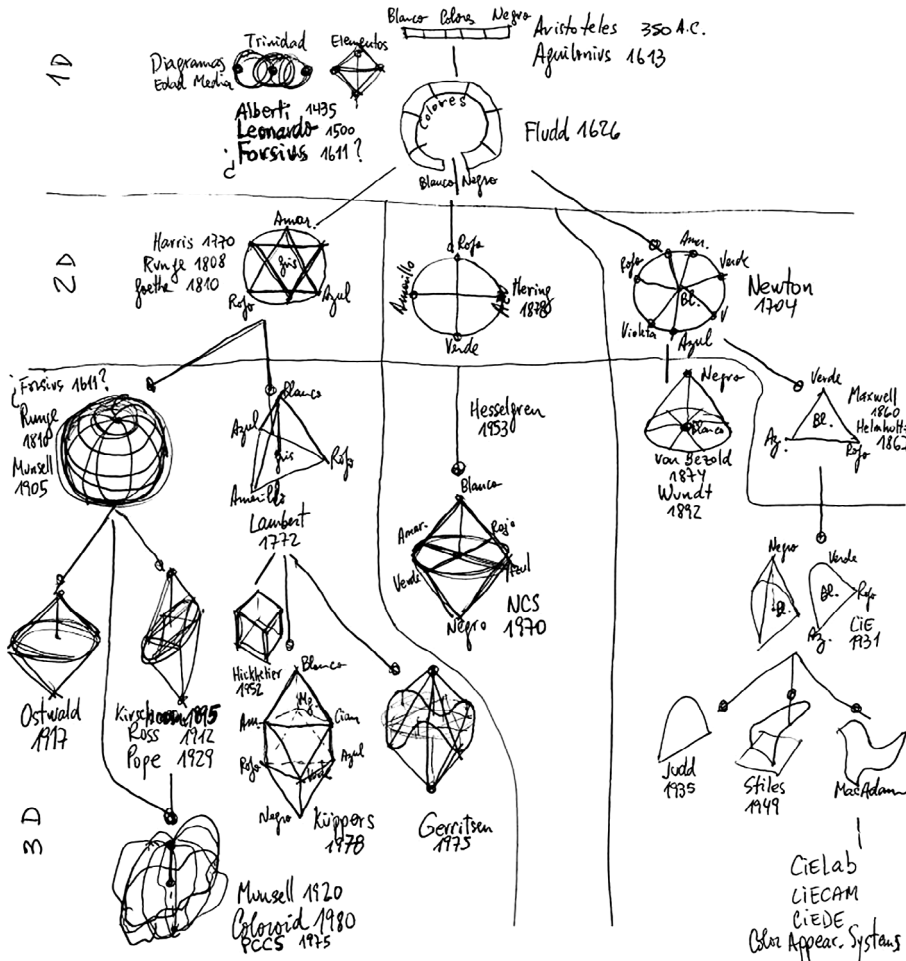 Blanco Colores Negro
Aristoteles 350 A.C.
Aguilonius 1613
1D
Trinidad
Elementos
Diagramas
Edad Media
Alberti 1435
Leonardo 1500
¿Forsius 1611?
Colores
Fludd 1626
Blanco Negro
2D
Harris 1770
Runge 1808
Goethe 1810
Amar.
Gris
Rojo
Azul
Rojo
Amarillo
Hering
1878
Verde
Amar.
Rojo
Verde
Bl.
V
Violeta
Azul
Newton
1704
¿Forsius 1611?
Runge
1810
Munsell
1905
Blanco
Azul
Gris
Rojo
Amarillo
Lambert
1772
Hesselgren
1953
Blanco
Amar.
Rojo
Verde
Azul
Negro
NCS
1970
Negro
Blanco
von Bezold
1874
Wundt
1892
Verde
Bl.
Az.
Rojo
Maxwell
1860
Negro
Bl.
Verde
Bl.
Rojo
Az.
CIE
1931
3D
Ostwald
1917
Ross 1912
Pope 1929
Hickethier
1952
Blanco
Mg
Am
Cian
Rojo
Azul
Verde
Negro
Küppers
1978
Gerritsen
1975
Judd
1935
Stiles
1949
MacAdam
Munsell 1920
Coloroid 1980
PCCS 1975
CIELab
CIECAM
CIEDE
Color Appear. Systems